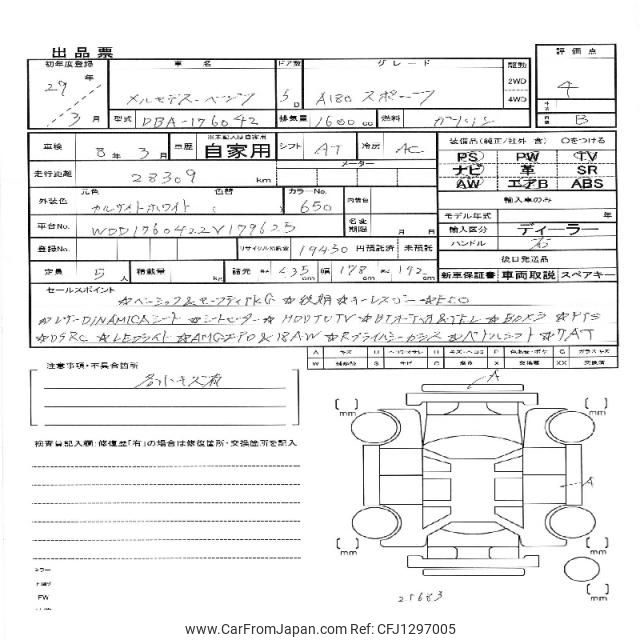 出品票
初年度登録 車名 ドア数 グレード 駆動 評価点
29年 メルセデス・ベンツ 5D A180 スポーツ 2WD 4WD 4
3月 型式 DBA-176042 排気量 1600cc 燃料 ガソリン B
車検 8年3月 車歴 ※未記入は自家用 自家用 シフト AT 冷房 AC
装備品(純正/社外 含) ○をつける
PS PW TV
ナビ 革 SR
AW エアB ABS
走行距離 28309 km メーター
外装色 元色 カルサイトホワイト 色替 カラーNo. 650 内装色
輸入車のみ
モデル年式 年
車台No. WDD1760422V179625 名変期限 月 日
輸入区分 ディーラー
ハンドル 右
登録No. リサイクル預託金 19450 円預託済 未預託
後日発送品
定員 5人 積載量 kg 諸元 長さ 435cm 幅 178cm 高さ 142cm
新車保証書 車両取説 スペアキー
セールスポイント
☆ベーシック&セーフティPKG ☆後期 ☆キーレスゴー ☆ECO
☆レザーDINAMICAシート ☆シートヒーター ☆HDDナビTV ☆BTオーディオ&TEL ☆Bカメラ ☆PTS
☆DSRC ☆LEDライト ☆AMGエアロ&18AW ☆Rプライバシーガラス ☆パドルシフト ☆7AT
注意事項・不具合箇所
各小キズ有
検査員記入欄:修復歴「有」の場合は修復箇所・交換箇所を記入
A
A
mm
mm
mm
mm
25683
www.CarFromJapan.com Ref: CFJ1297005